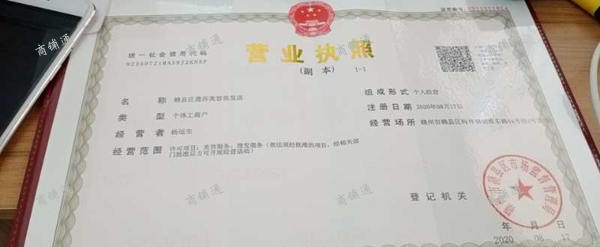 统一社会信用代码
营业执照
(副本) 1-1
名称 赣县区
类型 个体工商户
经营者 杨运生
经营范围 许可项目：美容服务，理发服务（依法须经批准的项目，经相关部
门批准后方可开展经营活动）
组成形式 个人经营
注册日期 2020年08月17日
经营场所 赣州市赣县区
登记机关
赣州市赣县区市场监督管理局
2020 08 17
商铺通
商铺通
商铺通
商铺通
商铺通